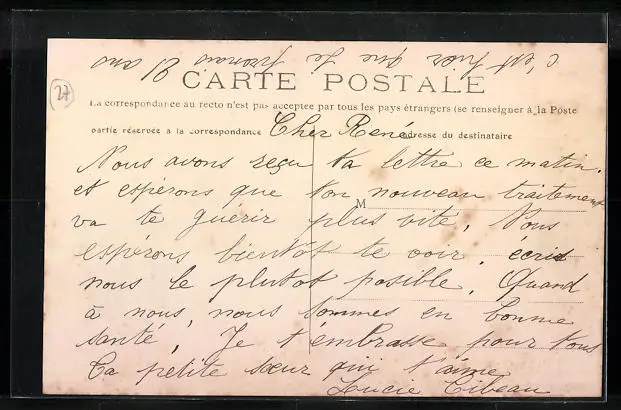 c'est hier que je prenais 21 ans
CARTE POSTALE
27
La correspondance au recto n'est pas acceptée par tous les pays étrangers (se renseigner à la Poste
partie réservée à la correspondance
adresse du destinataire
Cher René
Nous avons reçu ta lettre ce matin.
et espérons que ton nouveau traitement
M
va te guérir plus vite, Nous
espérons bientôt te voir, écris
nous le plutot posible, Quand
à nous, nous sommes en bonne
santé, Je t'embrasse pour tous
Ta petite sœur qui t'aime
Lucie Cibeau